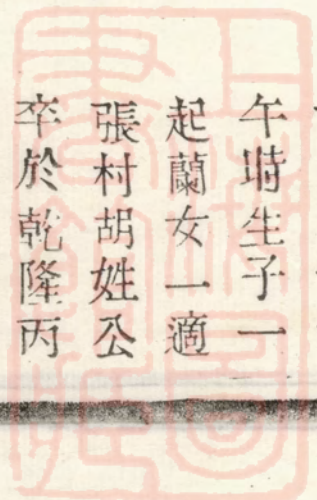 午時生子一
起蘭女一適
張村胡姓公
卒於乾隆丙